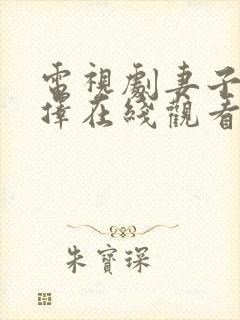 電視劇妻子
擇在綫觀看
朱寶琛